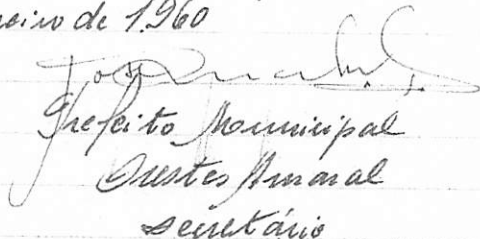 eiro de 1.960
Prefeito Municipal
Orestes Amaral
secretário